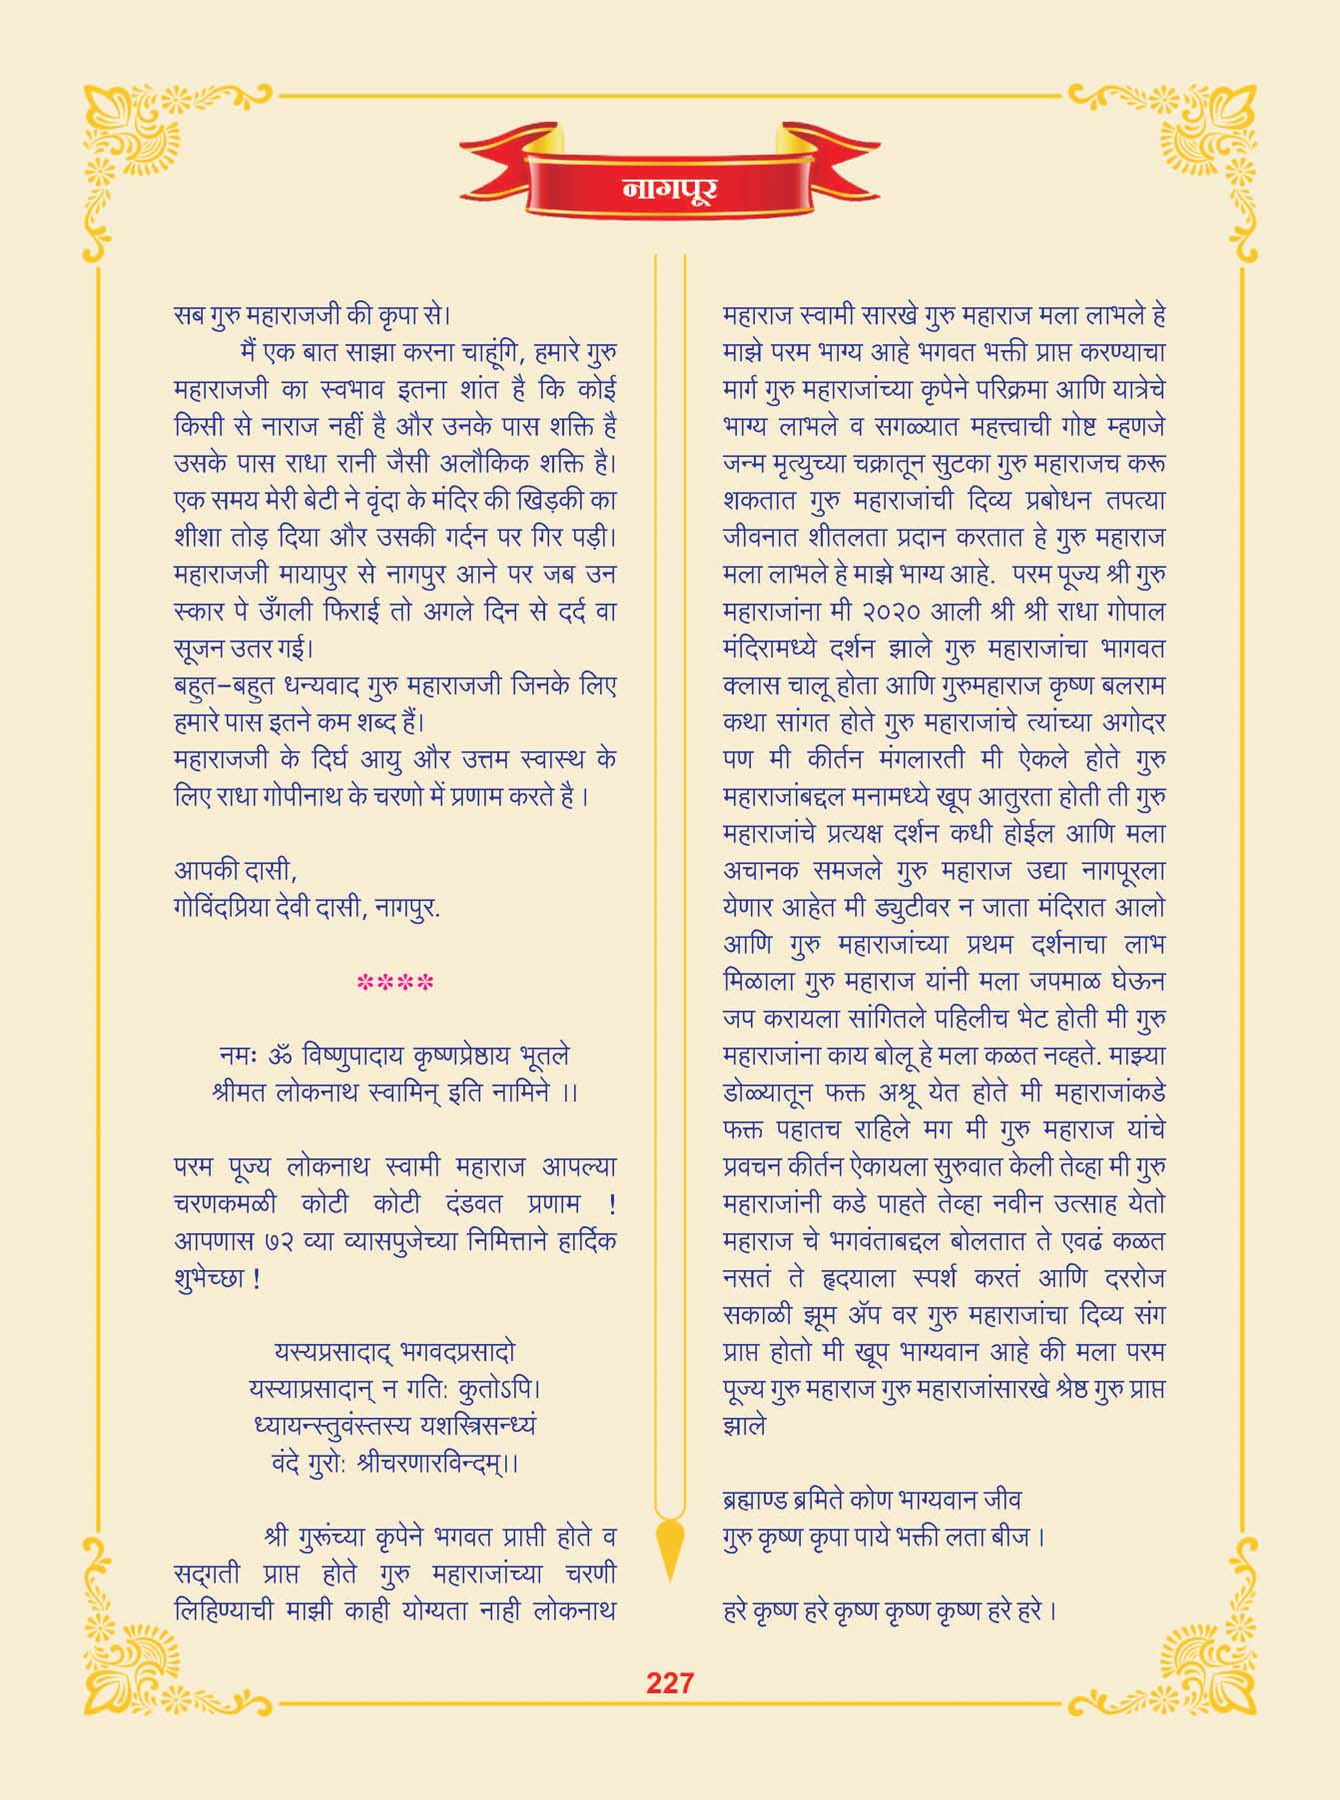 नागपूर
सब गुरु महाराजजी की कृपा से।
मैं एक बात साझा करना चाहूंगि, हमारे गुरु
महाराजजी का स्वभाव इतना शांत है कि कोई
किसी से नाराज नहीं है और उनके पास शक्ति है
उसके पास राधा रानी जैसी अलौकिक शक्ति है।
एक समय मेरी बेटी ने वृंदा के मंदिर की खिड़की का
शीशा तोड़ दिया और उसकी गर्दन पर गिर पड़ी।
महाराजजी मायापुर से नागपुर आने पर जब उन
स्कार पे उँगली फिराई तो अगले दिन से दर्द वा
सूजन उतर गई।
बहुत-बहुत धन्यवाद गुरु महाराजजी जिनके लिए
हमारे पास इतने कम शब्द हैं।
महाराजजी के दिर्घ आयु और उत्तम स्वास्थ के
लिए राधा गोपीनाथ के चरणो में प्रणाम करते है ।
आपकी दासी,
गोविंदप्रिया देवी दासी, नागपुर.
****
नमः ॐ विष्णुपादाय कृष्णप्रेष्ठाय भूतले
श्रीमत लोकनाथ स्वामिन् इति नामिने ।।
परम पूज्य लोकनाथ स्वामी महाराज आपल्या
चरणकमळी कोटी कोटी दंडवत प्रणाम !
आपणास ७२ व्या व्यासपुजेच्या निमित्ताने हार्दिक
शुभेच्छा !
यस्यप्रसादाद् भगवदप्रसादो
यस्याप्रसादान् न गतिः कुतोऽपि।
ध्यायन्स्तुवंस्तस्य यशस्त्रिसन्ध्यं
वंदे गुरोः श्रीचरणारविन्दम्।।
श्री गुरूंच्या कृपेने भगवत प्राप्ती होते व
सद्‌गती प्राप्त होते गुरु महाराजांच्या चरणी
लिहिण्याची माझी काही योग्यता नाही लोकनाथ
महाराज स्वामी सारखे गुरु महाराज मला लाभले हे
माझे परम भाग्य आहे भगवत भक्ती प्राप्त करण्याचा
मार्ग गुरु महाराजांच्या कृपेने परिक्रमा आणि यात्रेचे
भाग्य लाभले व सगळ्यात महत्त्वाची गोष्ट म्हणजे
जन्म मृत्युच्या चक्रातून सुटका गुरु महाराजच करू
शकतात गुरु महाराजांची दिव्य प्रबोधन तपत्या
जीवनात शीतलता प्रदान करतात हे गुरु महाराज
मला लाभले हे माझे भाग्य आहे. परम पूज्य श्री गुरु
महाराजांना मी २०२० आली श्री श्री राधा गोपाल
मंदिरामध्ये दर्शन झाले गुरु महाराजांचा भागवत
क्लास चालू होता आणि गुरुमहाराज कृष्ण बलराम
कथा सांगत होते गुरु महाराजांचे त्यांच्या अगोदर
पण मी कीर्तन मंगलारती मी ऐकले होते गुरु
महाराजांबद्दल मनामध्ये खूप आतुरता होती ती गुरु
महाराजांचे प्रत्यक्ष दर्शन कधी होईल आणि मला
अचानक समजले गुरु महाराज उद्या नागपूरला
येणार आहेत मी ड्युटीवर न जाता मंदिरात आलो
आणि गुरु महाराजांच्या प्रथम दर्शनाचा लाभ
मिळाला गुरु महाराज यांनी मला जपमाळ घेऊन
जप करायला सांगितले पहिलीच भेट होती मी गुरु
महाराजांना काय बोलू हे मला कळत नव्हते. माझ्या
डोळ्यातून फक्त अश्रू येत होते मी महाराजांकडे
फक्त पहातच राहिले मग मी गुरु महाराज यांचे
प्रवचन कीर्तन ऐकायला सुरुवात केली तेव्हा मी गुरु
महाराजांनी कडे पाहते तेव्हा नवीन उत्साह येतो
महाराज चे भगवंताबद्दल बोलतात ते एवढं कळत
नसतं ते हृदयाला स्पर्श करतं आणि दररोज
सकाळी झूम ॲप वर गुरु महाराजांचा दिव्य संग
प्राप्त होतो मी खूप भाग्यवान आहे की मला परम
पूज्य गुरु महाराज गुरु महाराजांसारखे श्रेष्ठ गुरु प्राप्त
झाले
ब्रह्माण्ड ब्रमिते कोण भाग्यवान जीव
गुरु कृष्ण कृपा पाये भक्ती लता बीज ।
हरे कृष्ण हरे कृष्ण कृष्ण कृष्ण हरे हरे ।
227